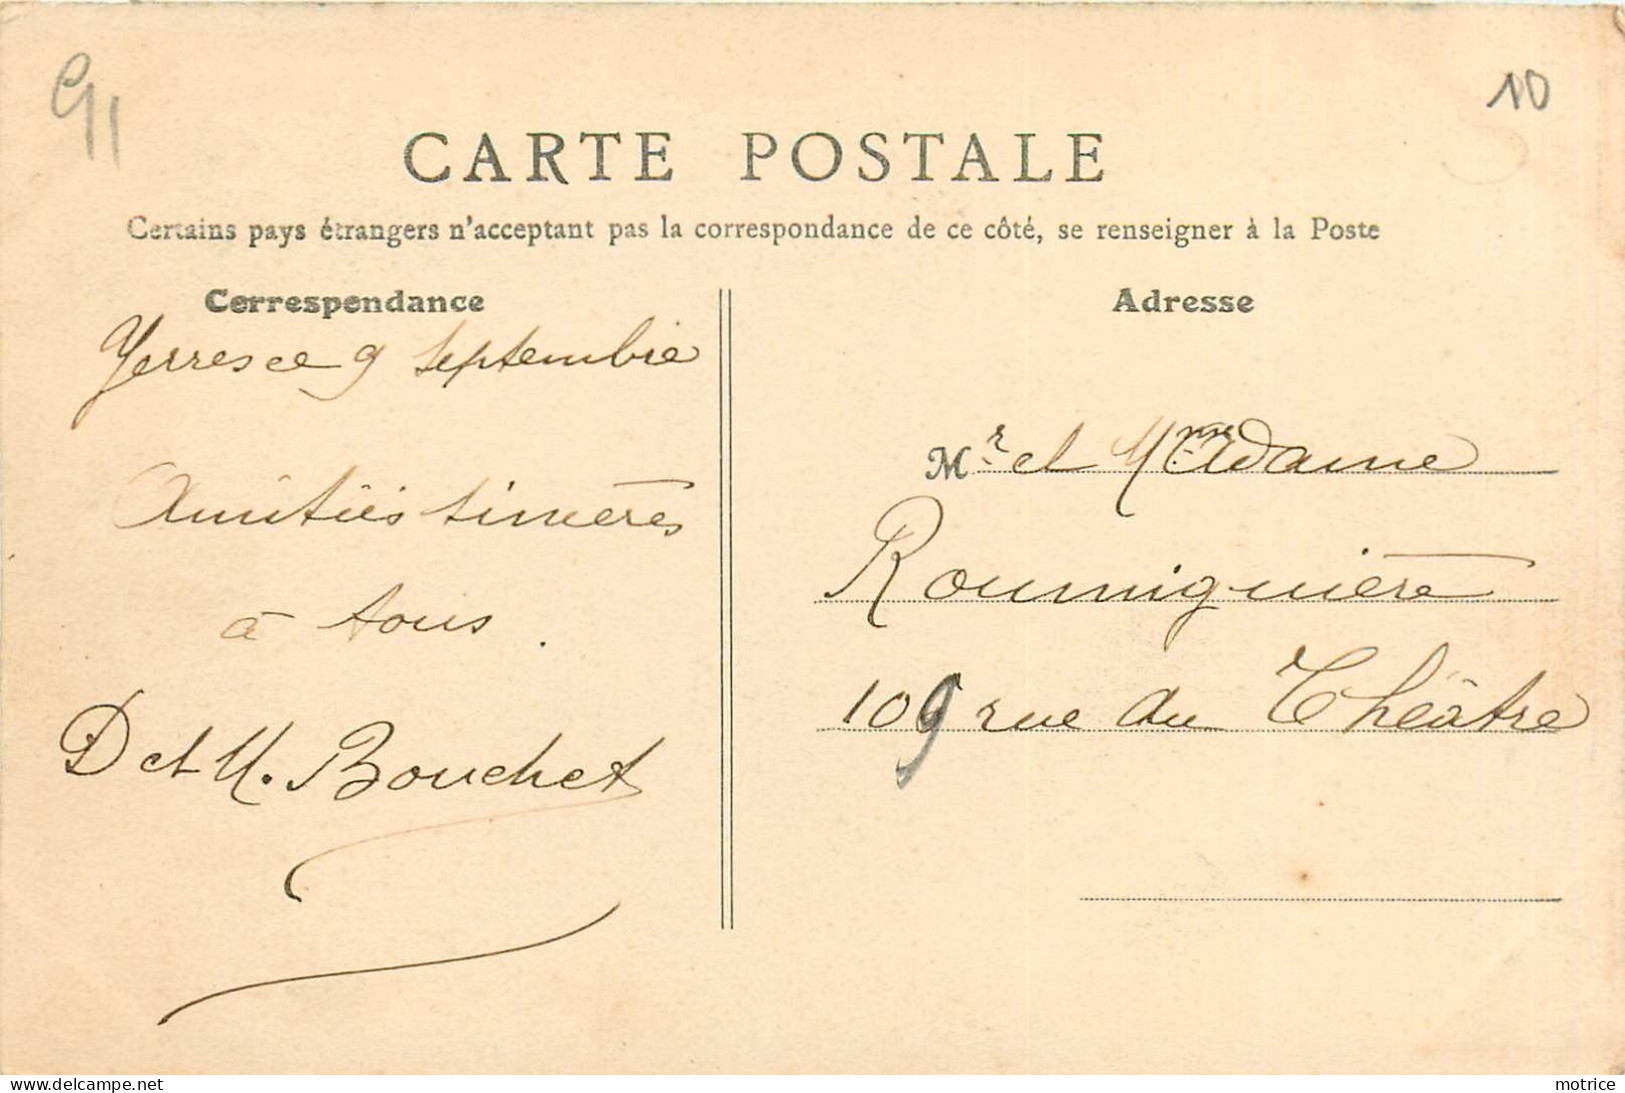 91
10
CARTE POSTALE
Certains pays étrangers n'acceptant pas la correspondance de ce côté, se renseigner à la Poste
Correspondance
Yerres ce 9 septembre
Amitiés sincères
à tous.
D et M. Bouchet
Adresse
Mr et Madame
Roumiguière
109 rue du Théâtre
www.delcampe.net
motrice